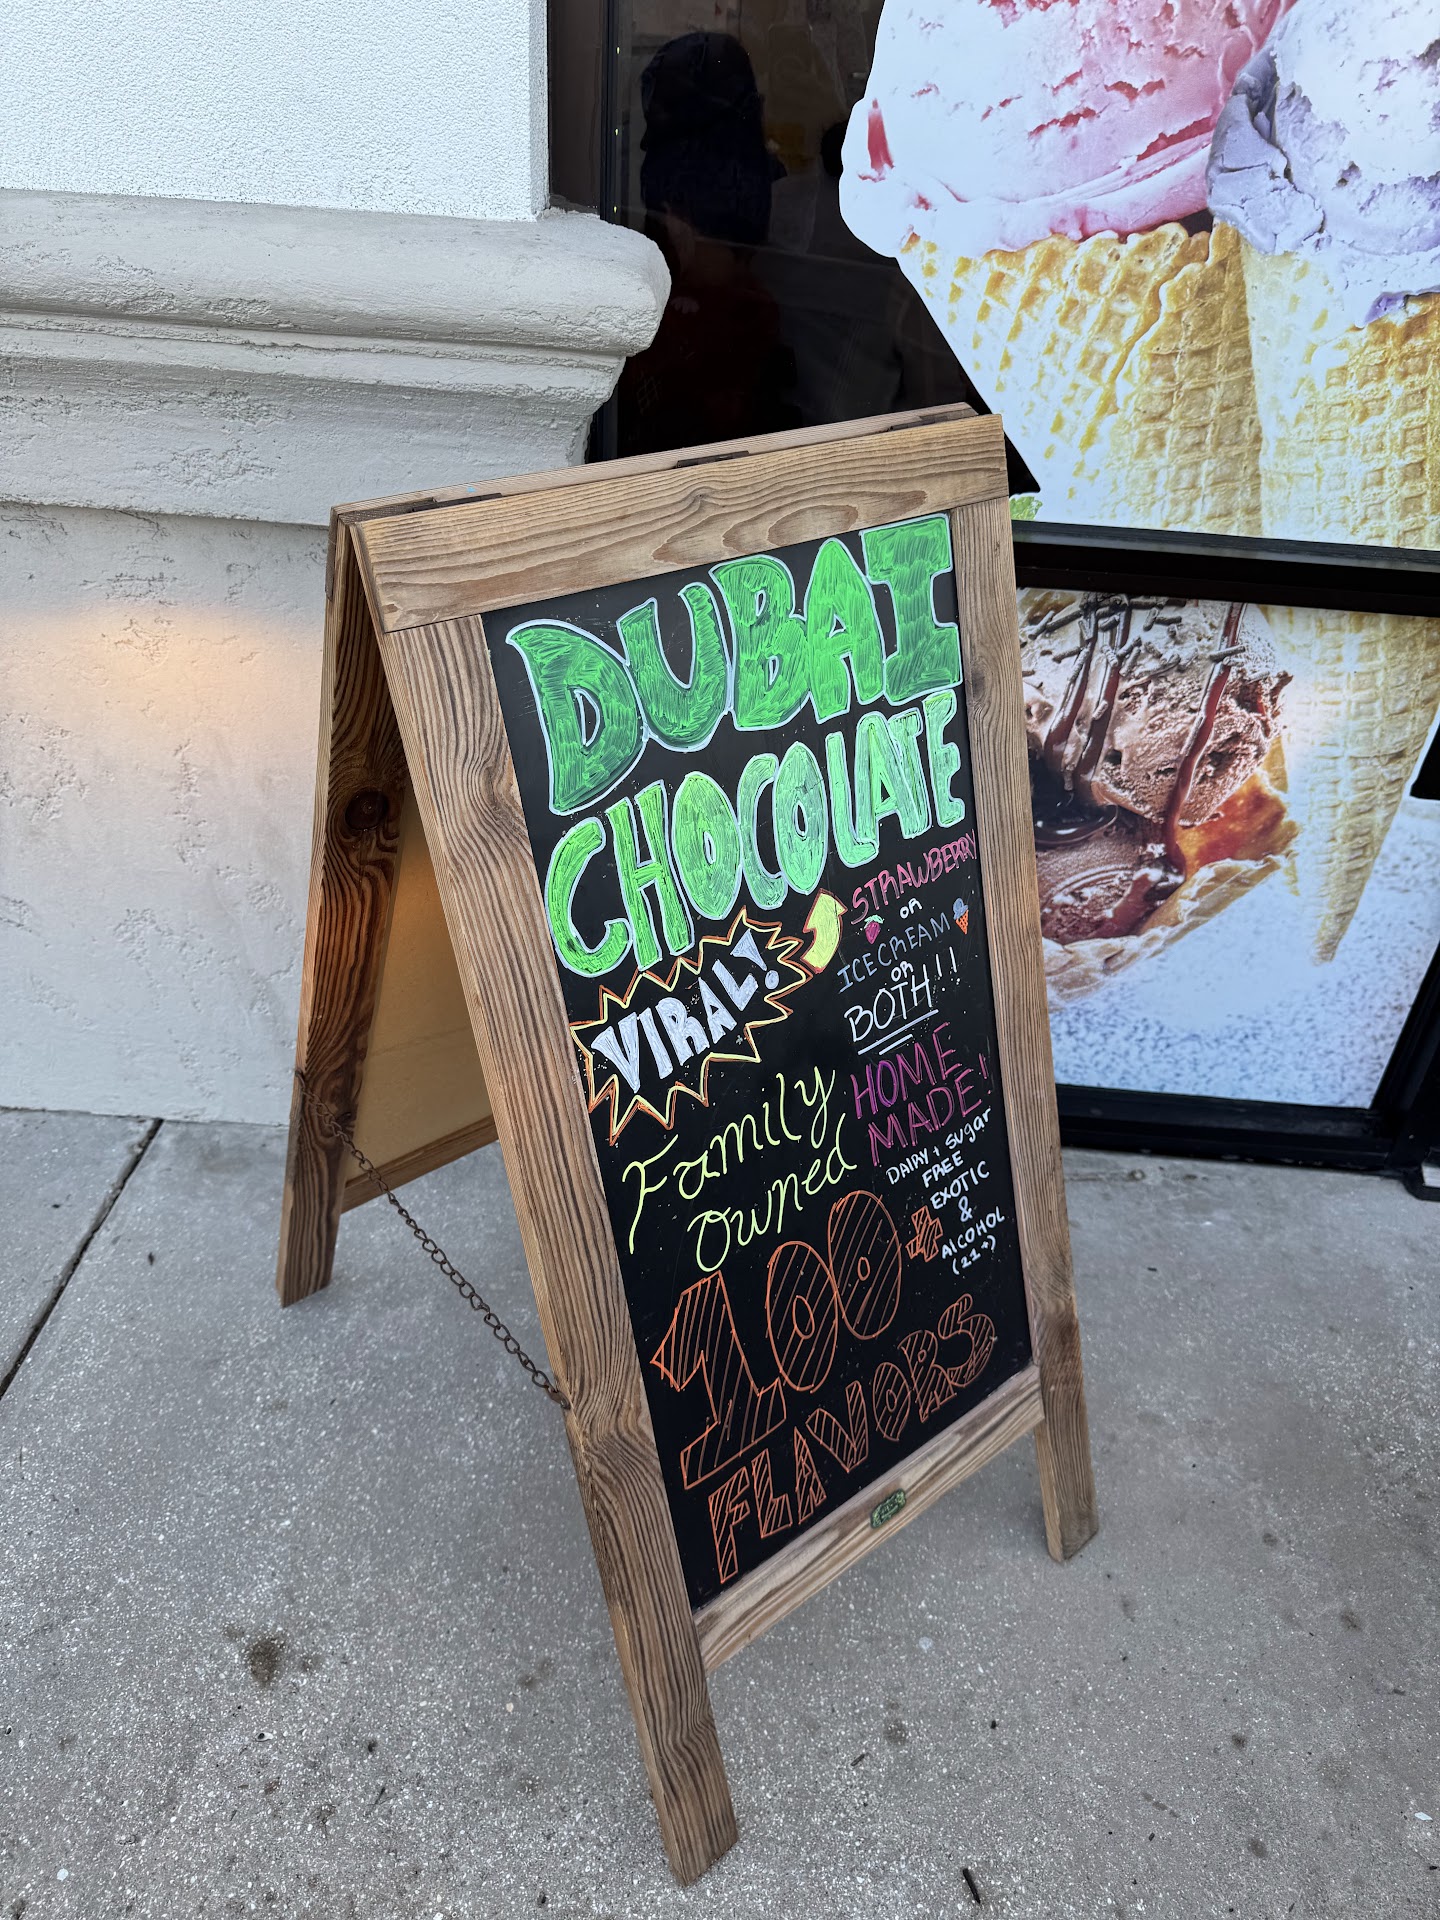 DUBAI
CHOCOLATE
VIRAL!
STRAWBERRY
OR
ICE CREAM
OR
BOTH!!
Family
Owned
HOME
MADE!
DAIRY + SUgar
FREE
EXOTIC
&
AlCOHOL
(21+)
100+
FLAVORS